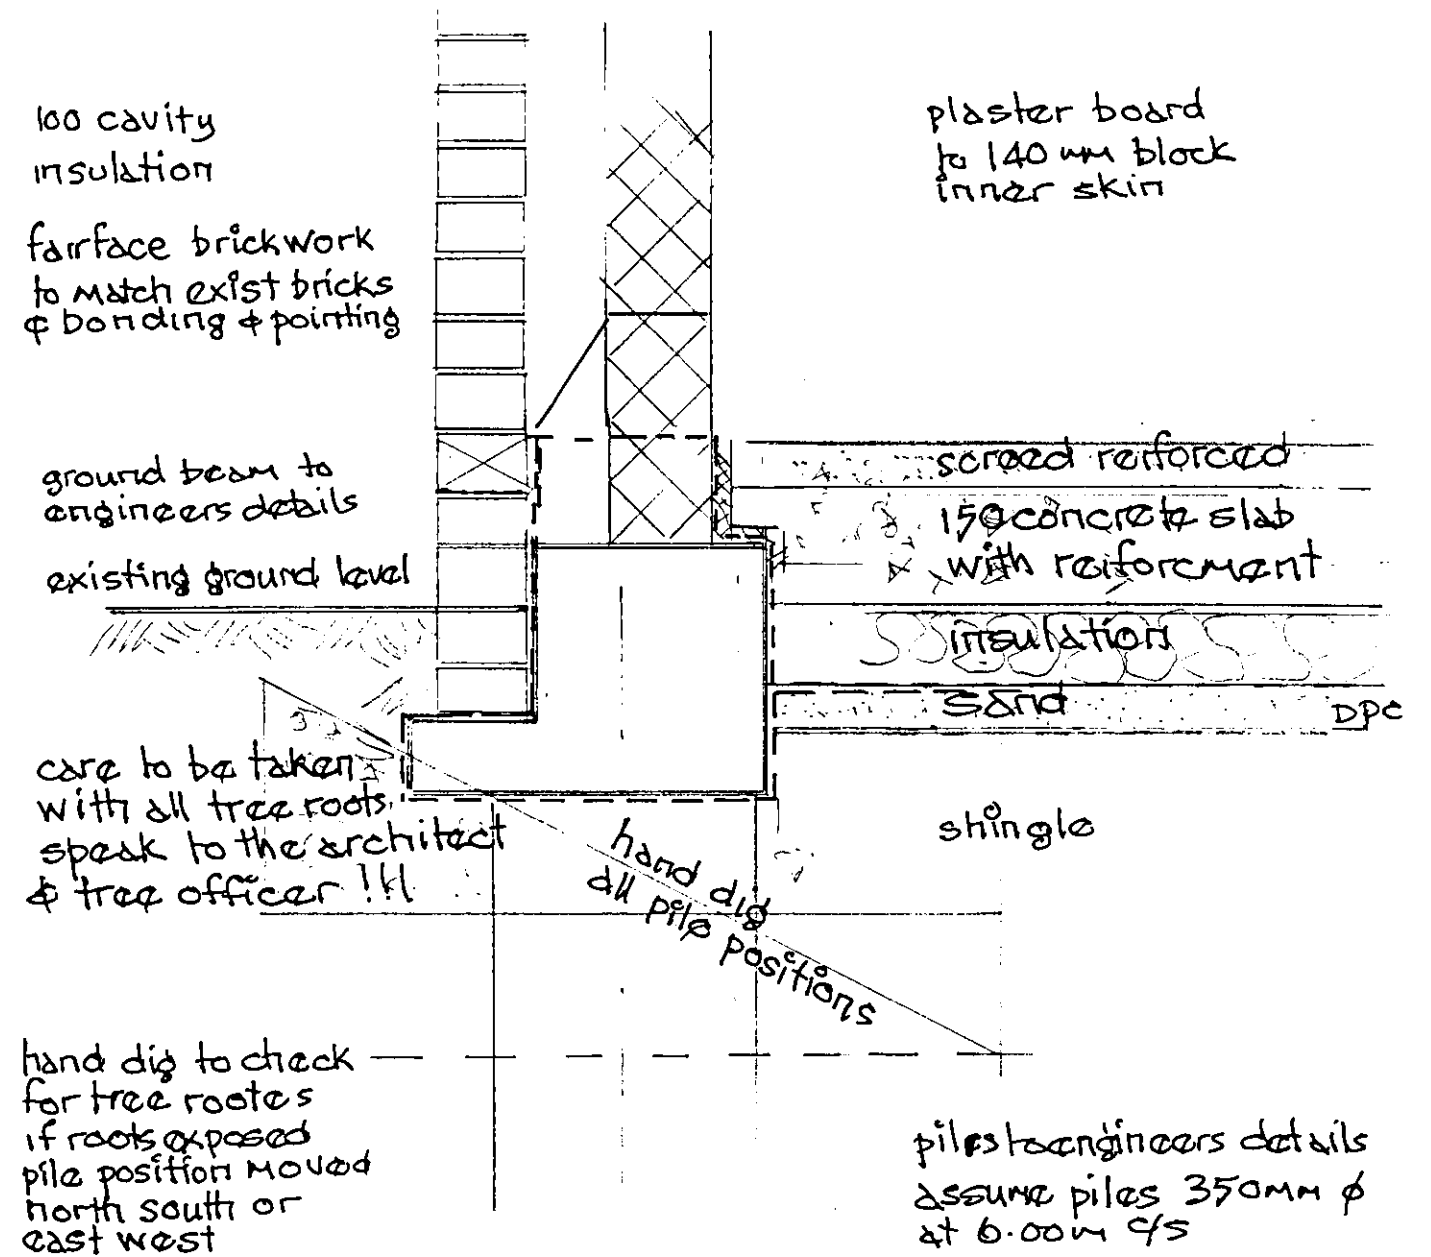 100 cavity
insulation
fairface brickwork
to match exist bricks
& bonding & pointing
ground beam to
engineers details
existing ground level
care to be taken
with all tree roots
speak to the architect
& tree officer !!!
hand dig to check
for tree rootes
if roots exposed
pile position moved
north south or
east west
hand dig
all pile positions
plaster board
to 140 mm block
inner skin
screed reiforced
150 concrete slab
with reiforcment
insulation
sand
DPC
shingle
piles to engineers details
assume piles 350mm ϕ
at 6.00m c/s